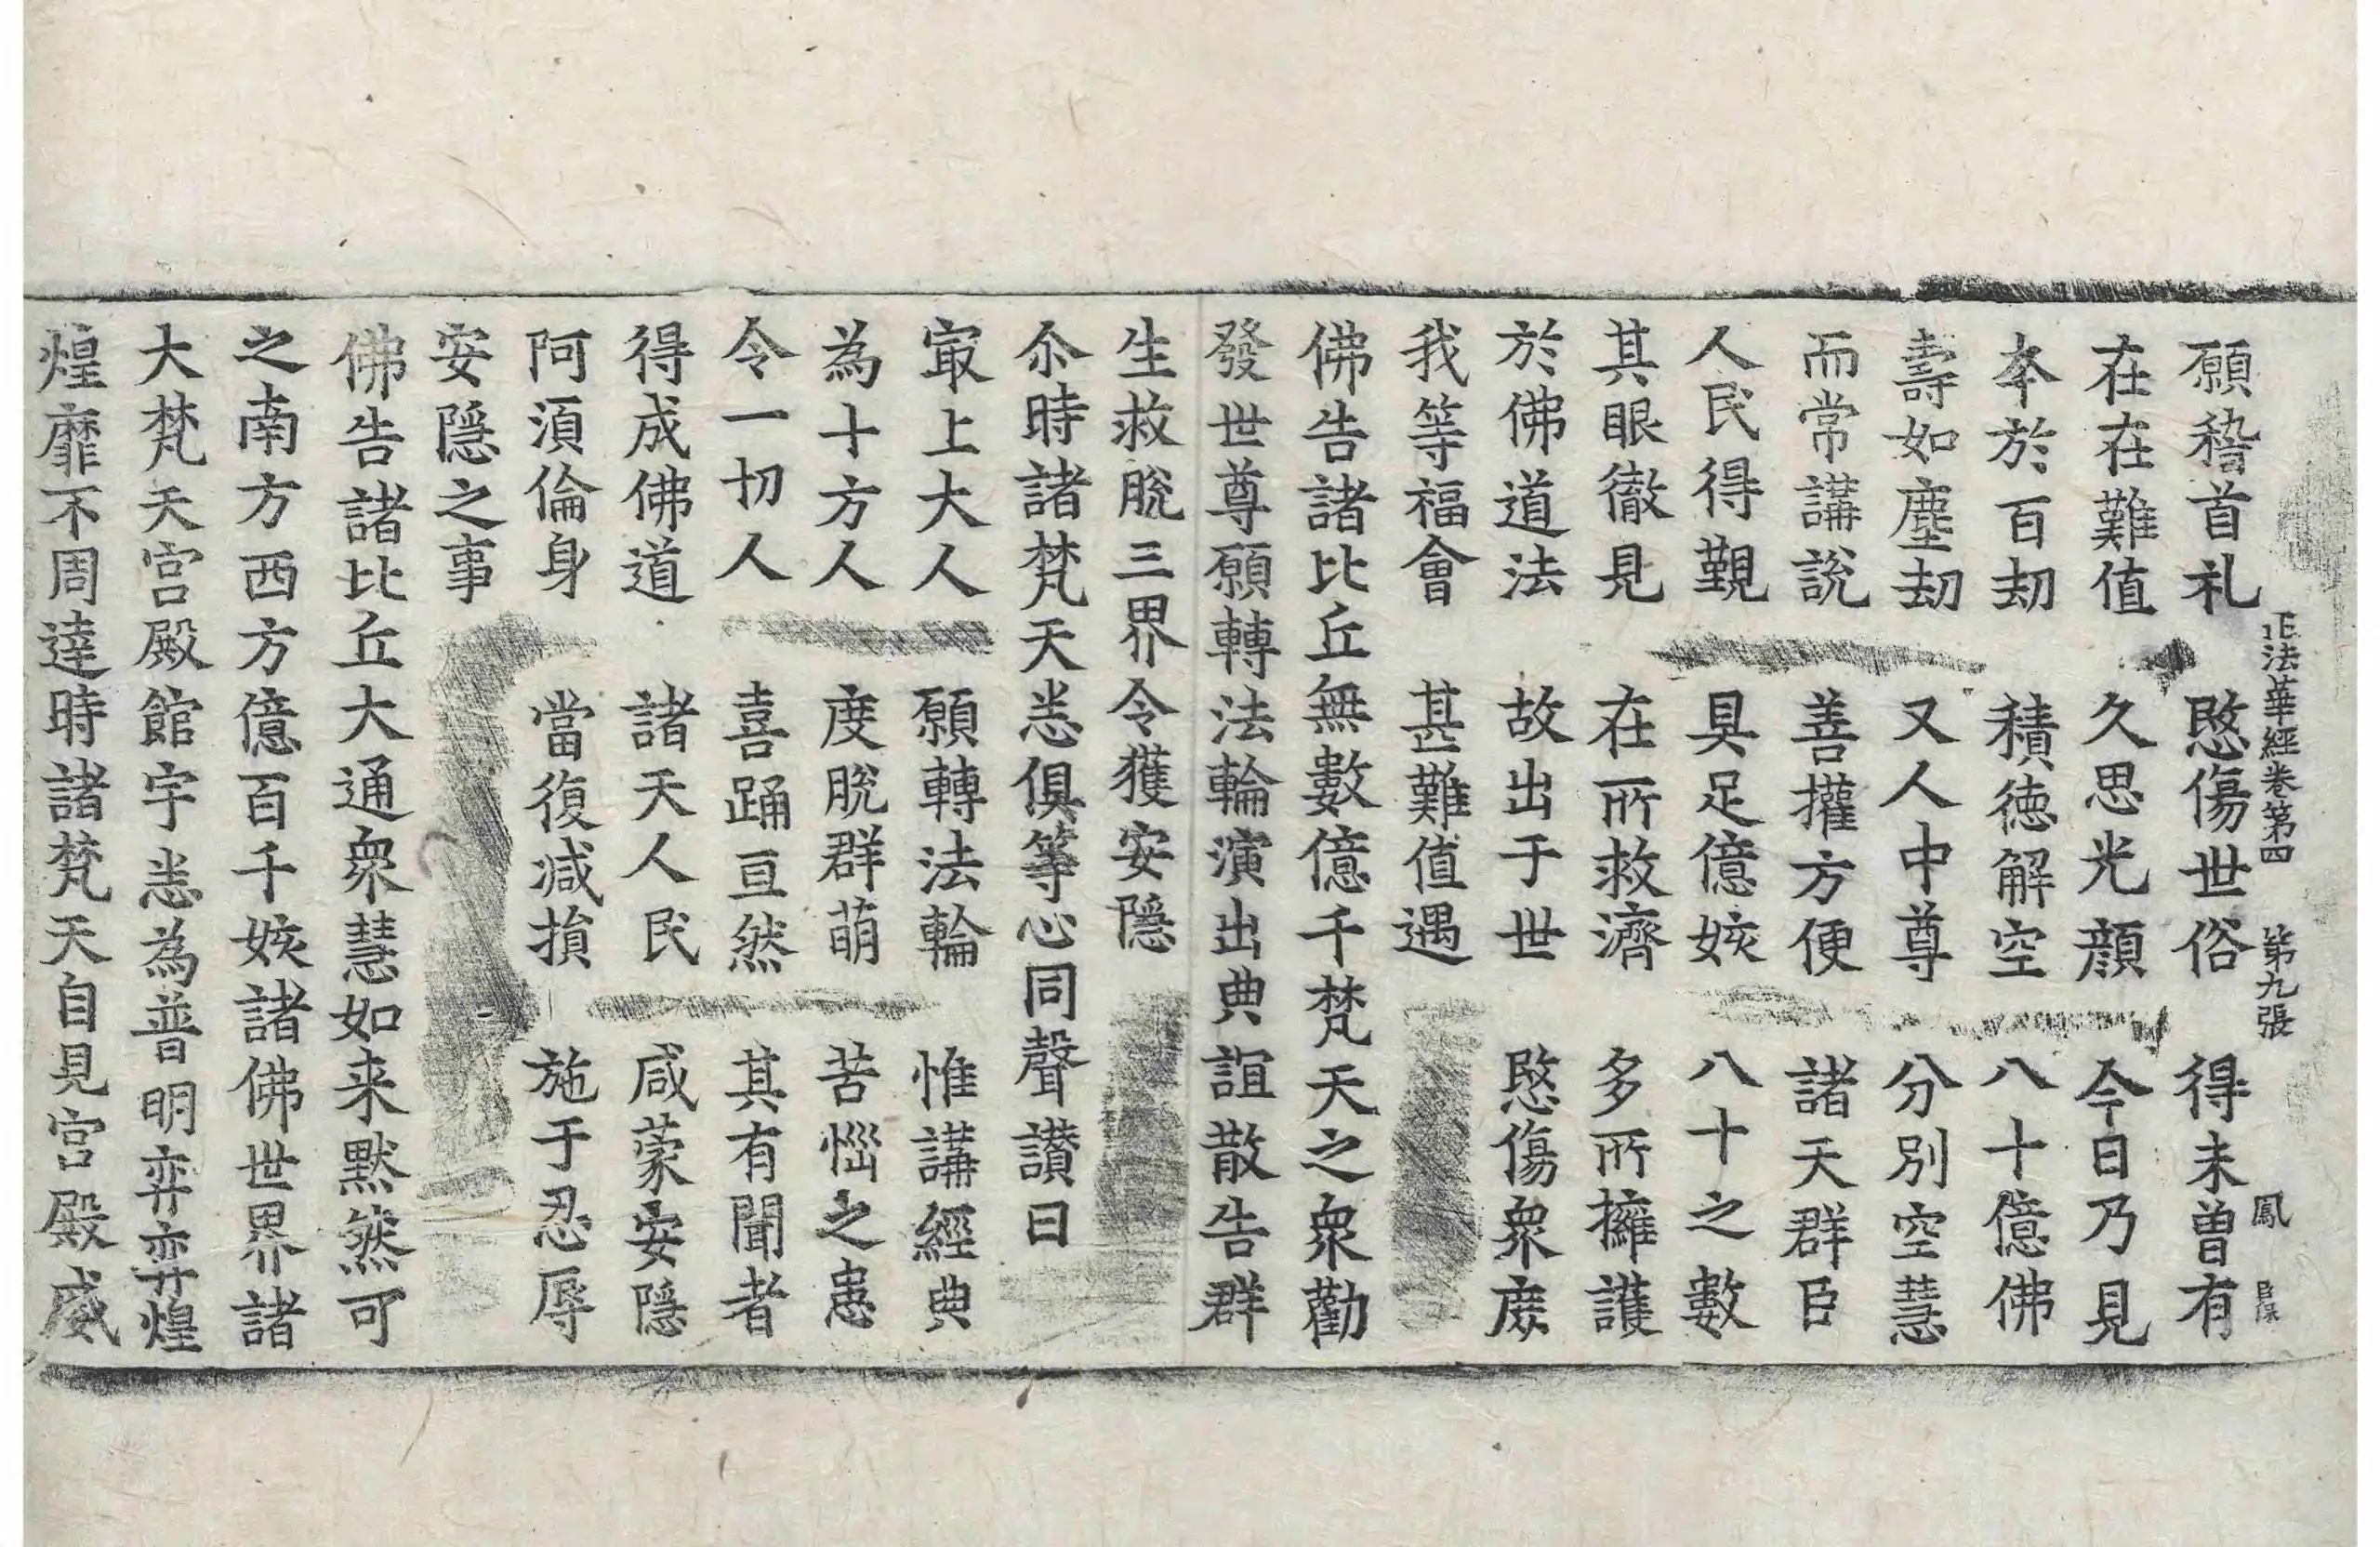 正法華經卷第四 第九張 鳳
願稽首礼 愍傷世俗 得未曽有
在在難值 久思光顔 今日乃見
夲於百劫 積徳解空 八十億佛
壽如塵劫 又人中尊 分別空慧
而常講說 善攉方便 諸天群臣
人民得覲 具足億姟 八十之數
其眼徹見 在所救濟 多所擁護
於佛道法 故出于世 愍傷衆庻
我等福會 甚難值遇
佛告諸比丘無數億千梵天之衆勸
發世尊願轉法輪演出典誼散告群
生救脫三界令獲安隱
尒時諸梵天悉俱等心同聲讃曰
冣上大人 願轉法輪 惟講經典
為十方人 度脫群萌 苦惱之患
令一切人 喜踊亘然 其有聞者
得成佛道 諸天人民 咸蒙安隱
阿須倫身 當復减損 施于忍辱
安隱之事
佛告諸比丘大通衆慧如来默然可
之南方西方億百千姟諸佛世界諸
大梵天宫殿館宇悉為普明弈弈煌
煌靡不周逹時諸梵天自見宫殿威